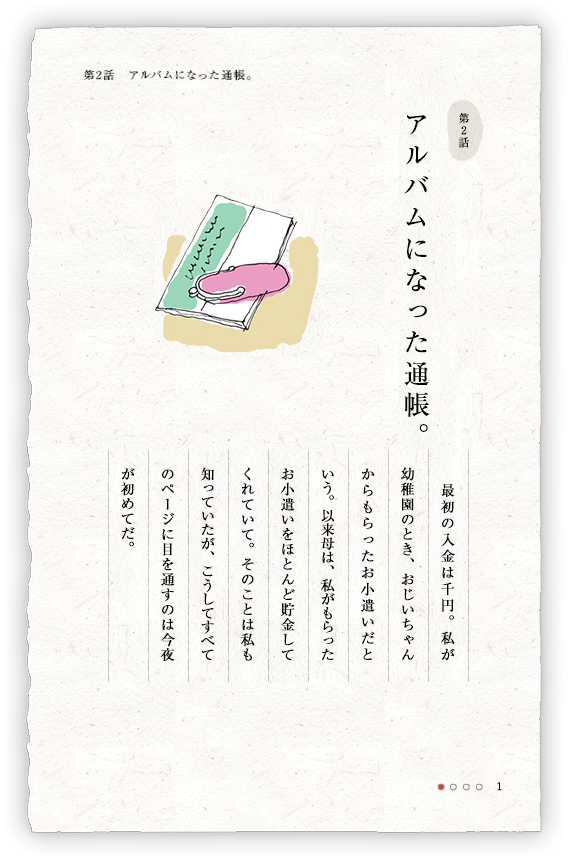 第2話　アルバムになった通帳。
第2話
アルバムになった通帳。
最初の入金は千円。私が
幼稚園のとき、おじいちゃん
からもらったお小遣いだと
いう。以来母は、私がもらった
お小遣いをほとんど貯金して
くれていて。そのことは私も
知っていたが、こうしてすべて
のページに目を通すのは今夜
が初めてだ。
1